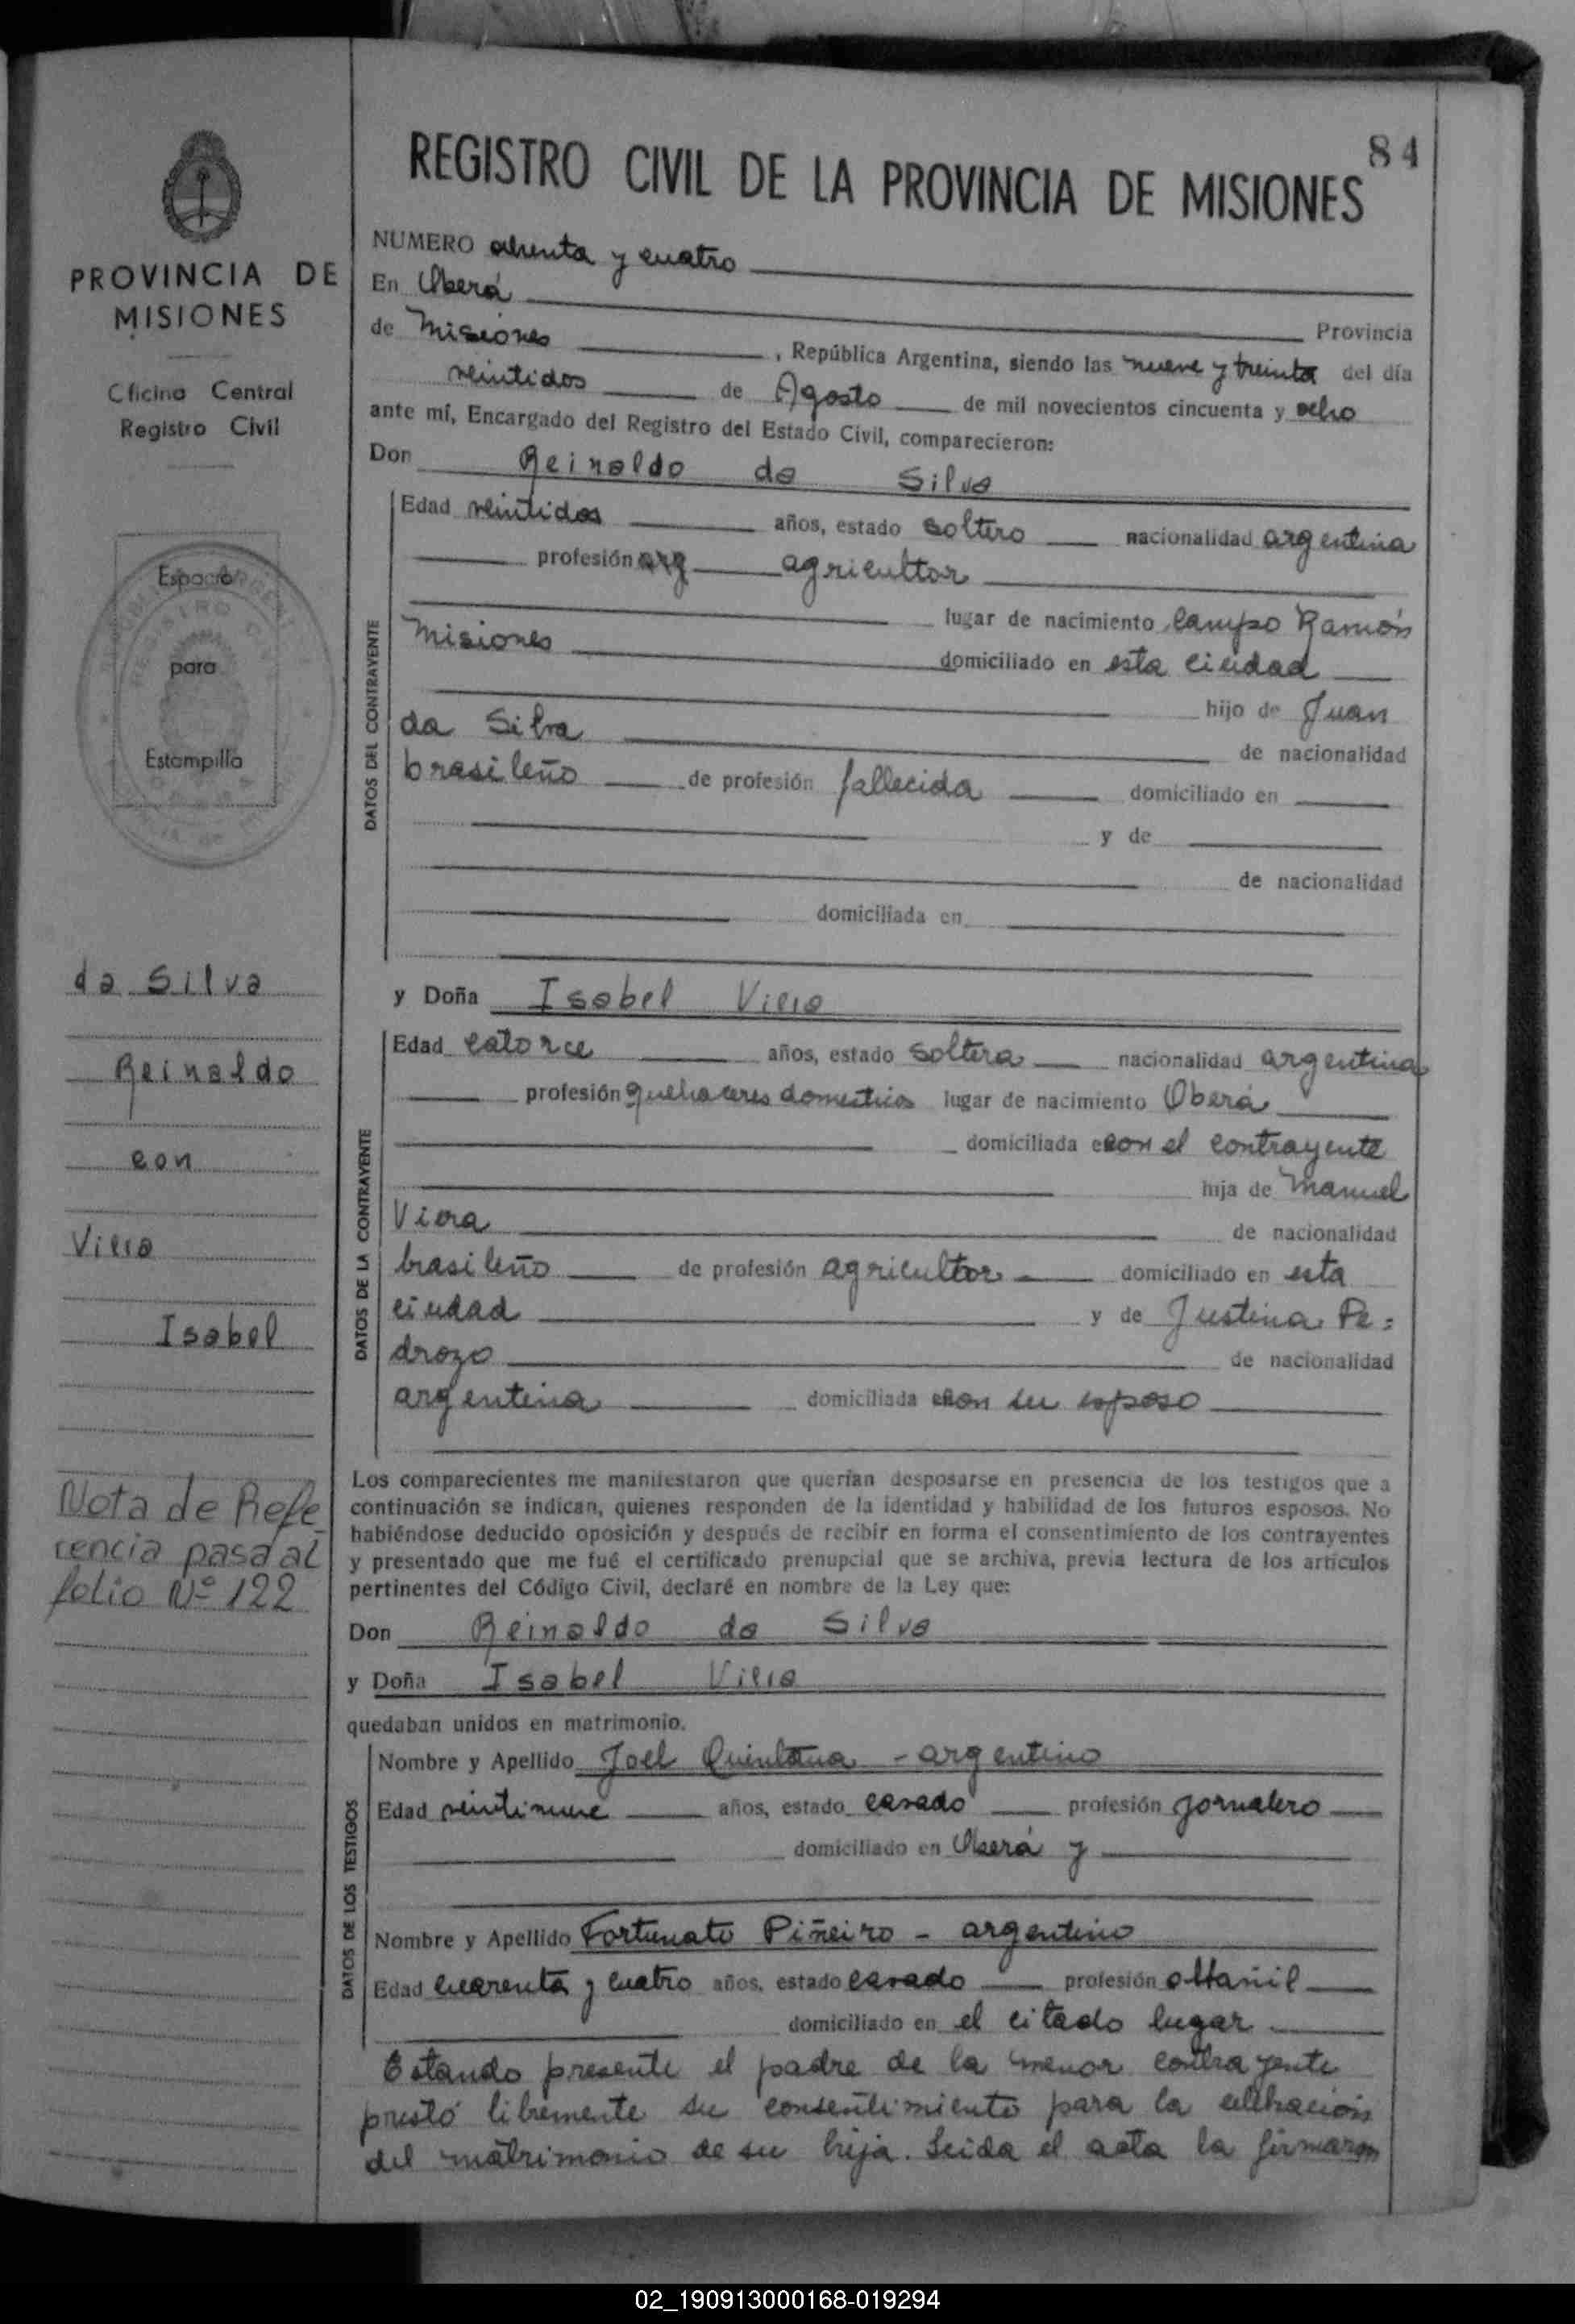 84
REGISTRO CIVIL DE LA PROVINCIA DE MISIONES
PROVINCIA DE
MISIONES
Oficina Central
Registro Civil
Espacio
para
Estampilla
da Silva
Reinaldo
con
Viera
Isabel
Nota de Refe
rencia pasa al
folio Nº 122
NUMERO ochenta y cuatro
En Oberá
Provincia
de Misiones , República Argentina, siendo las nueve y treinta del día
veintidos de Agosto de mil novecientos cincuenta y ocho
ante mí, Encargado del Registro del Estado Civil, comparecieron:
Don Reinaldo da Silva
DATOS DEL CONTRAYENTE
Edad veintidos años, estado soltero nacionalidad argentina
profesión arg agricultor
lugar de nacimiento Campo Ramón
Misiones domiciliado en esta ciudad
hijo de Juan
da Silva de nacionalidad
brasileño de profesión fallecida domiciliado en
y de
de nacionalidad
domiciliada en
y Doña Isabel Viera
DATOS DE LA CONTRAYENTE
Edad catorce años, estado soltera nacionalidad argentina
profesión quehaceres domesticos lugar de nacimiento Oberá
domiciliada con el contrayente
hija de Manuel
Viera de nacionalidad
brasileño de profesión agricultor domiciliado en esta
ciudad y de Justina Pe=
drozo de nacionalidad
argentina domiciliada con su esposo
Los comparecientes me manifestaron que querían desposarse en presencia de los testigos que a
continuación se indican, quienes responden de la identidad y habilidad de los futuros esposos. No
habiéndose deducido oposición y después de recibir en forma el consentimiento de los contrayentes
y presentado que me fué el certificado prenupcial que se archiva, previa lectura de los artículos
pertinentes del Código Civil, declaré en nombre de la Ley que:
Don Reinaldo da Silva
y Doña Isabel Viera
quedaban unidos en matrimonio.
DATOS DE LOS TESTIGOS
Nombre y Apellido Joel Quintana - argentino
Edad veintinueve años, estado casado profesión jornalero
domiciliado en Oberá y
Nombre y Apellido Fortunato Piñeiro - argentino
Edad cuarenta y cuatro años, estado casado profesión albañil
domiciliado en el citado lugar
Estando presente el padre de la menor contrayente
prestó libremente su consentimiento para la celebración
del matrimonio de su hija. Leida el acta la firmaron
02_190913000168-019294